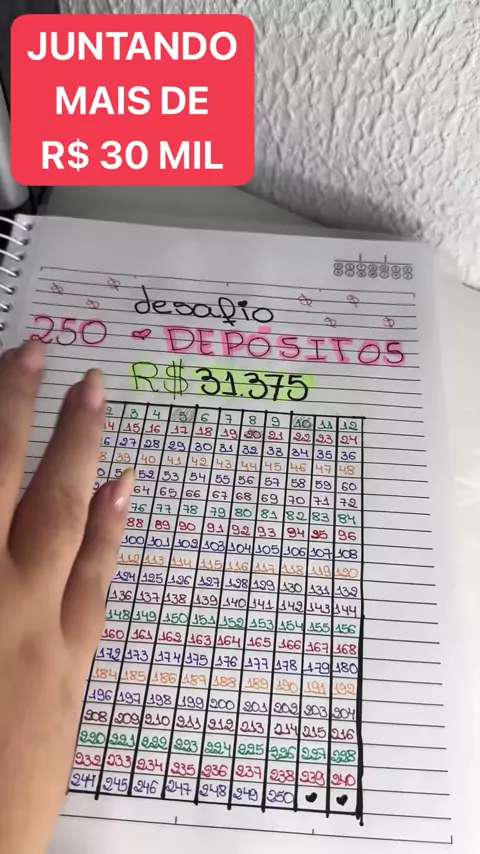 JUNTANDO
MAIS DE
R$ 30 MIL
desafio
250 DEPÓSITOS
R$ 31.375
2 3 4 5 6 7 8 9 10 11 12
14 15 16 17 18 19 20 21 22 23 24
27 28 29 30 31 32 33 34 35 36
39 40 41 42 43 44 45 46 47 48
52 53 54 55 56 57 58 59 60
64 65 66 67 68 69 70 71 72
76 77 78 79 80 81 82 83 84
88 89 90 91 92 93 94 95 96
100 101 102 103 104 105 106 107 108
112 113 114 115 116 117 118 119 120
124 125 126 127 128 129 130 131 132
136 137 138 139 140 141 142 143 144
148 149 150 151 152 153 154 155 156
160 161 162 163 164 165 166 167 168
172 173 174 175 176 177 178 179 180
184 185 186 187 188 189 190 191 192
196 197 198 199 200 201 202 203 204
208 209 210 211 212 213 214 215 216
220 221 222 223 224 225 226 227 228
232 233 234 235 236 237 238 239 240
244 245 246 247 248 249 250